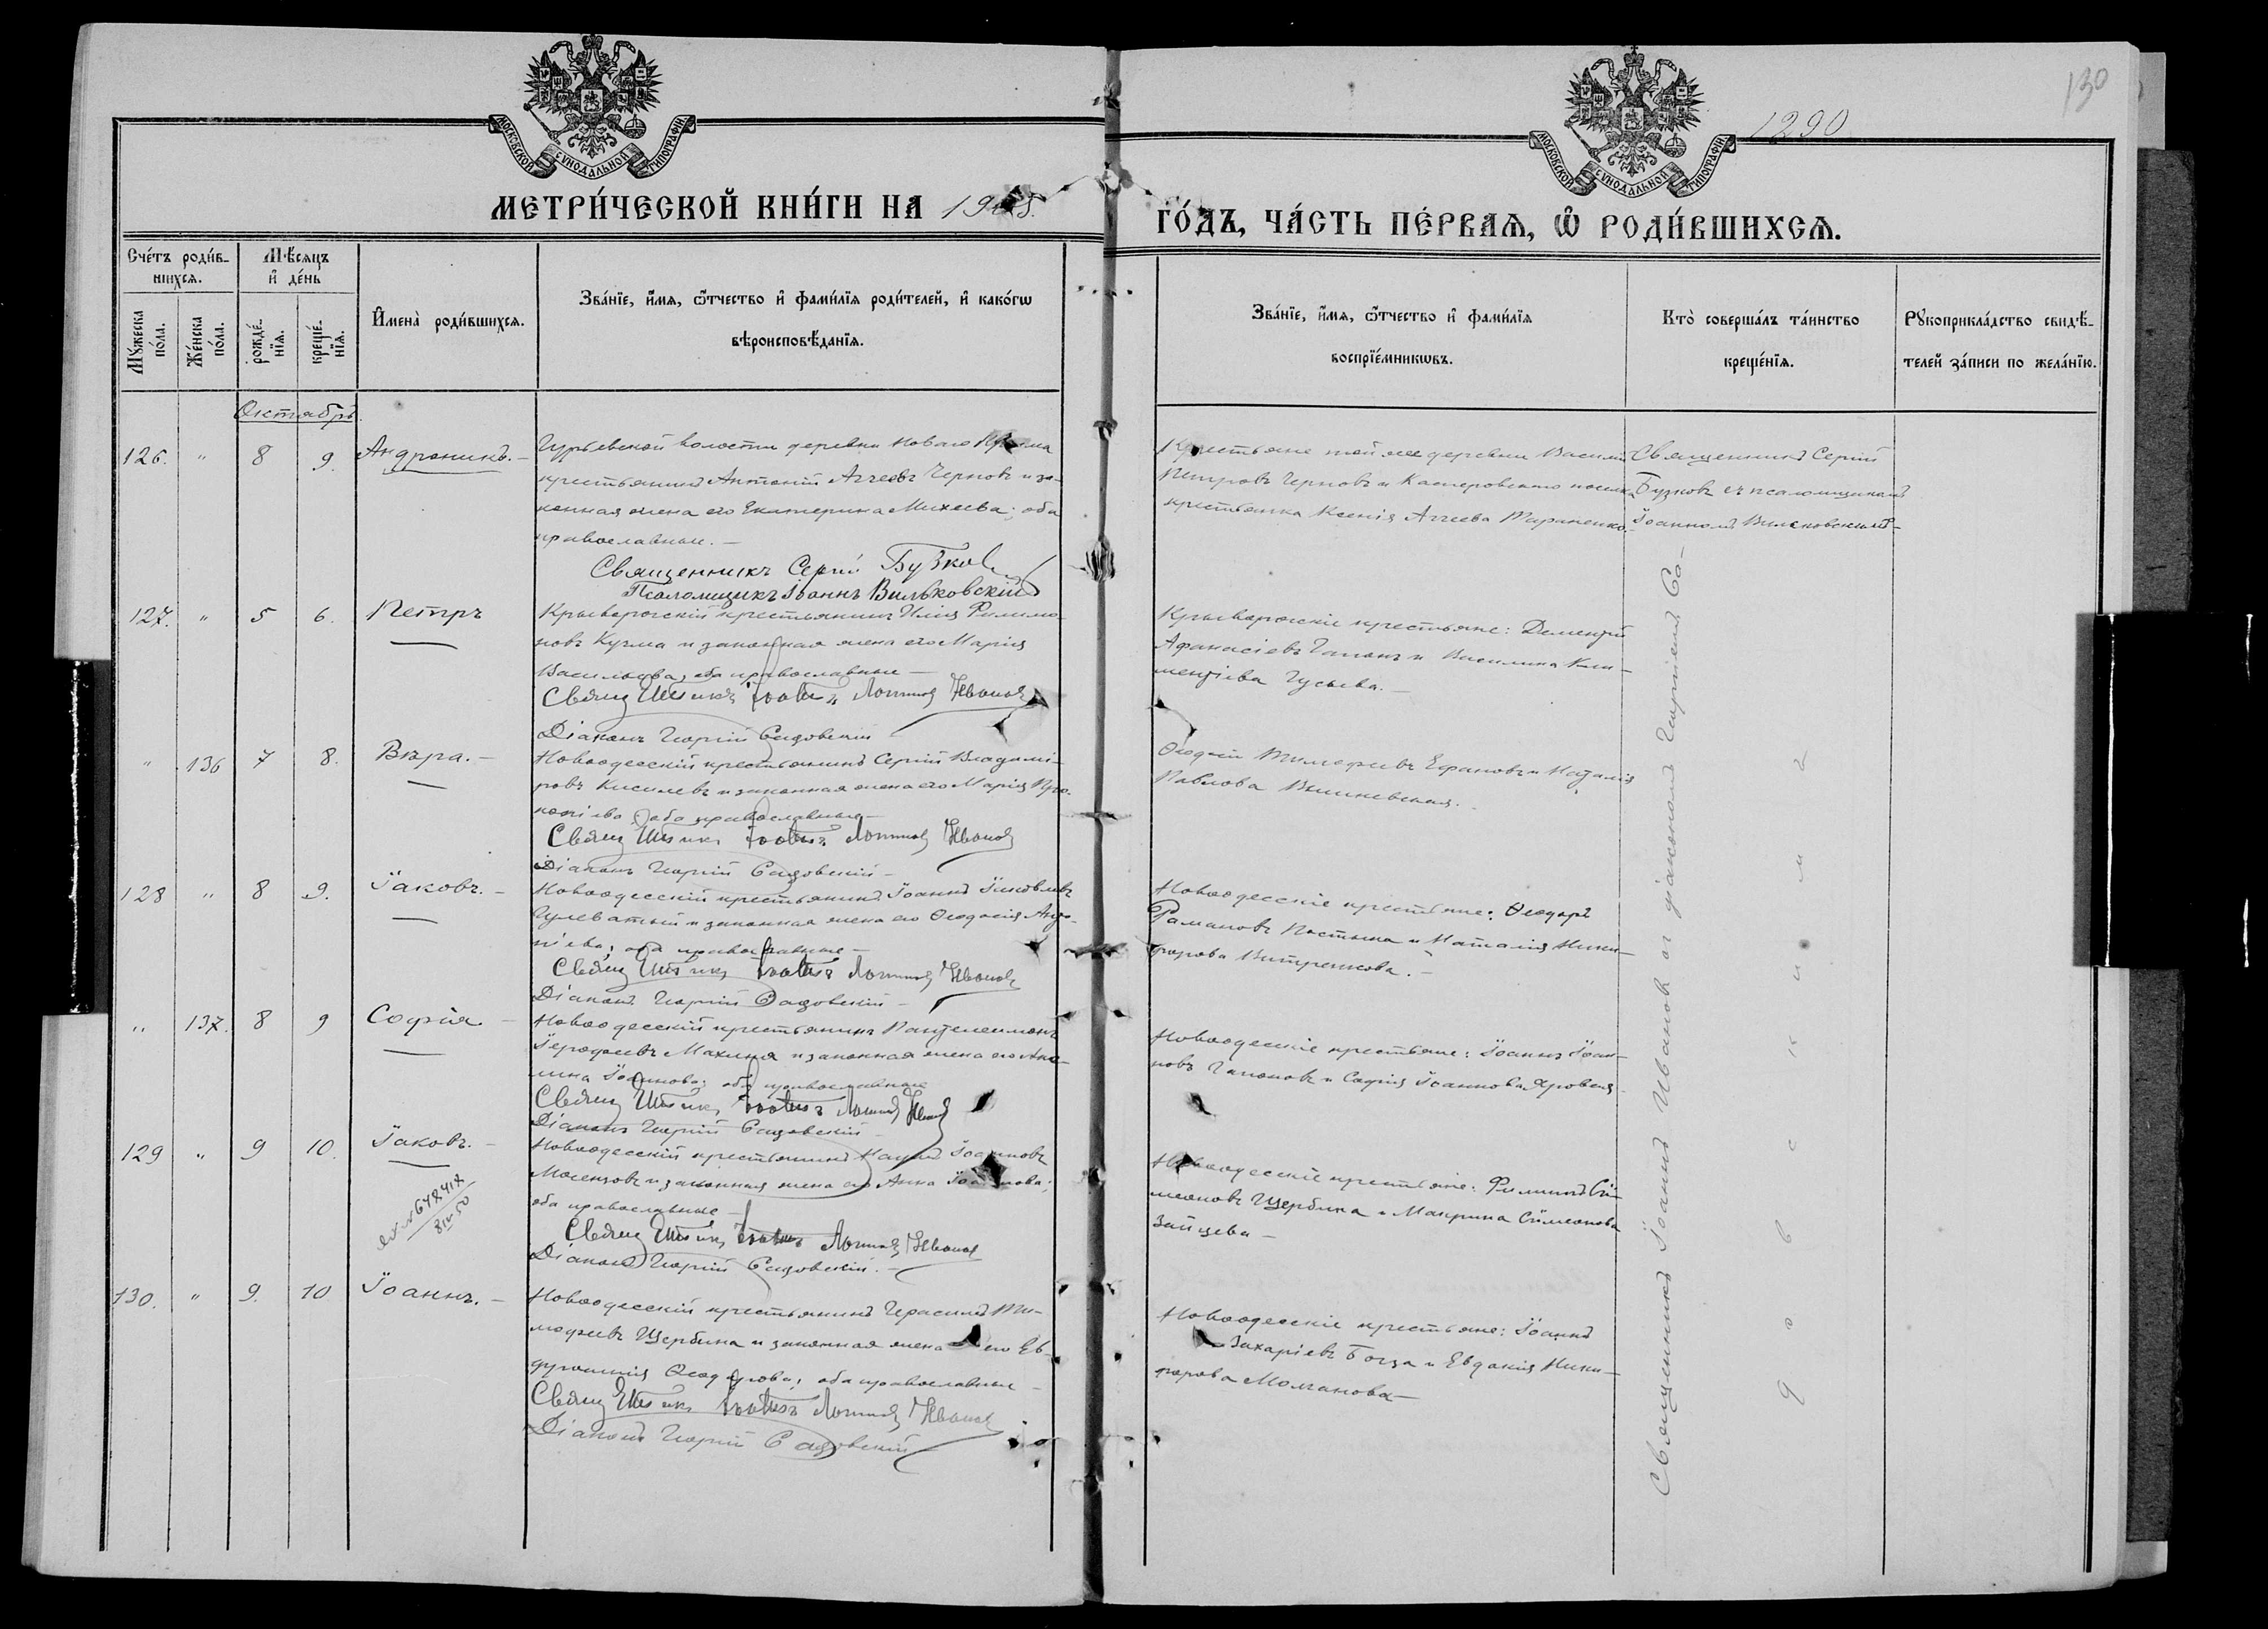 130
1290
МОСКОВСКОЙ СѴНОДАЛЬНОЙ ТИПОГРАФІИ.
МОСКОВСКОЙ СѴНОДАЛЬНОЙ ТИПОГРАФІИ.
МЕТРИ́ЧЕСКОЙ КНИ́ГИ НА 19
ГО́ДЪ, ЧА́СТЬ ПЕ́РВАѦ, Ѽ РОДИ́ВШИХСѦ.
Сче́тъ роди́в-
шихсѧ.
Мѣ́сяцъ
и҆ де́нь
Мꙋ́жеска
по́ла.
Же́нска
по́ла.
рожде́-
нїѧ.
креще́-
нїѧ.
И҆мена̀ роди́вшихсѧ.
Зва́нїе, и҆́мѧ, ѻ҆́тчество и҆ фами́лїѧ роди́телей, и҆ како́гѡ
вѣроисповѣ́данїѧ.
Зва́нїе, и҆́мѧ, ѻ҆́тчество и҆ фами́лїѧ
воспрїе́мникѡвъ.
Кто̀ соверша́лъ та́инство
креще́нїѧ.
Рꙋкоприкла́дство свидѣ́-
телей за́писи по жела́нїю.
Октябрь.
126. " 8 9. Андроникъ. –
Гурьевской волости деревни Новаго
крестьянинъ Антоній Аггеевъ Черновъ и за-
конная жена его Екатерина Михеева; оба
православные. –
Священникъ Сергій Бузков
Псаломщикъ Іоаннъ Вильковскій
Крестьяне той же деревни Василій
Петровъ Черновъ и поселка
крестьянка Ксенія Аггеева Тараненко.
Священникъ Сергій
Бузковъ съ псаломщикомъ
Іоанномъ Вильковскимъ –
127. " 5 6. Петръ
крестьянинъ Илія Филимо-
новъ Кузма и законная жена его Марія
Васильева, оба православные –
Іоаннъ Логинов Иванов
Діаконъ Георгій Садовскій
крестьяне: Дементій
Афанасіевъ Гапонъ и Василина Кли-
ментіева Гусева. –
" 136 7 8. Вѣра. –
Новоодесскій крестьянинъ Сергій Владимі-
ровъ Киселевъ и законная жена его Марія Про-
копіева, оба православные –
Іоаннъ Логинов Иванов
Діаконъ Георгій Садовскій –
Ѳеодот Тимофеевъ Ефановъ и Наталія
Павлова Вишневская.
128 " 8 9. Іаковъ. –
Новоодесскій крестьянинъ Іоаннъ Іаковлевъ
Гулеватый и законная жена его Ѳеодосія Анто-
ніева, оба православные –
Іоаннъ Логинов Иванов
Діаконъ Георгій Садовскій –
Новоодесскіе крестьяне: Ѳеодоръ
Романовъ и Наталія Ники-
форова Витренкова. –
" 137. 8 9 Софія –
Новоодесскій крестьянинъ Пантелеимонъ
Іерофеевъ Махиня и законная жена его Аки-
лина Іоаннова; оба православные
Іоаннъ Логинов Иванов
Діаконъ Георгій Садовскій –
Новоодесскіе крестьяне: Іоаннъ Іоан-
новъ Гапоновъ и Софія Іоаннова Яровая –
129 " 9 10. Іаковъ. –
Новоодесскій крестьянинъ Наумъ Іоанновъ
и законная жена его Анна
оба православные –
Іоаннъ Логинов Иванов
Діаконъ Георгій Садовскій. –
Новоодесскіе крестьяне: Филиппъ Сі-
меоновъ Щербина и Макрина Сімеонова
Зайцева –
130. " 9. 10 Іоаннъ. –
Новоодесскій крестьянинъ Герасимъ Ти-
мофеевъ Щербина и законная жена его Ев-
дукія Ѳеодорова; оба православные –
Іоаннъ Логинов Иванов
Діаконъ Георгій Садовскій
Новоодесскіе крестьяне: Іоаннъ
Захаріевъ Богза и Евдокія Ники-
форова Молчанова –
Священникъ Іоаннъ Ивановъ съ діакономъ Георгіемъ Са-
довскимъ